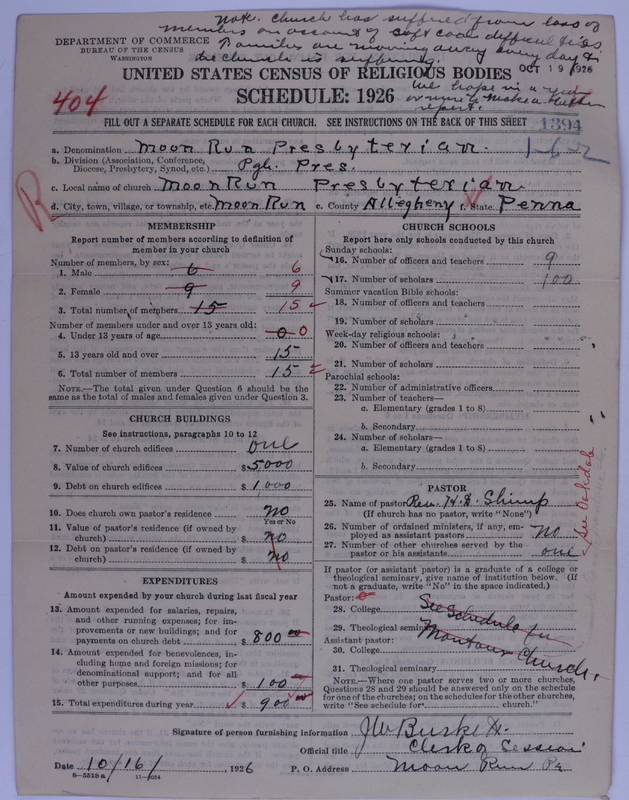 Note. Church has suffered from loss of
members on account of soft coal difficulties
Families are moving away every day &
the church is suffering.
We hope in a year
or more to make a better
report.
DEPARTMENT OF COMMERCE
BUREAU OF THE CENSUS
WASHINGTON
OCT 19 1926
UNITED STATES CENSUS OF RELIGIOUS BODIES
SCHEDULE: 1926
404
FILL OUT A SEPARATE SCHEDULE FOR EACH CHURCH. SEE INSTRUCTIONS ON THE BACK OF THIS SHEET
1394
a. Denomination Moon Run Presbyterian. 1-6-2
b. Division (Association, Conference, Diocese, Presbytery, Synod, etc.) Pgh. Pres.
c. Local name of church Moon Run Presbyterian.
d. City, town, village, or township, etc. Moon Run e. County Allegheny f. State Penna
R
MEMBERSHIP
Report number of members according to definition of
member in your church
Number of members, by sex:
1. Male 6 6
2. Female 9 9
3. Total number of members 15 15
Number of members under and over 13 years old:
4. Under 13 years of age 0 0
5. 13 years old and over 15
6. Total number of members 15
NOTE.—The total given under Question 6 should be the
same as the total of males and females given under Question 3.
CHURCH BUILDINGS
See instructions, paragraphs 10 to 12
7. Number of church edifices one
8. Value of church edifices $ 5000
9. Debt on church edifices $ 1,000
10. Does church own pastor's residence? No
Yes or No
11. Value of pastor's residence (if owned by
church) $ no
12. Debt on pastor's residence (if owned by
church) $ no
EXPENDITURES
Amount expended by your church during last fiscal year
13. Amount expended for salaries, repairs,
and other running expenses; for im-
provements or new buildings; and for
payments on church debt $ 800 00
14. Amount expended for benevolences, in-
cluding home and foreign missions; for
denominational support; and for all
other purposes $ 100
15. Total expenditures during year $ 900 00
CHURCH SCHOOLS
Report here only schools conducted by this church
Sunday schools:
16. Number of officers and teachers 9
17. Number of scholars 100
Summer vacation Bible schools:
18. Number of officers and teachers
19. Number of scholars
Week-day religious schools:
20. Number of officers and teachers
21. Number of scholars
Parochial schools:
22. Number of administrative officers
23. Number of teachers—
a. Elementary (grades 1 to 8)
b. Secondary
24. Number of scholars—
a. Elementary (grades 1 to 8)
b. Secondary
PASTOR
25. Name of pastor Rev. H. D. Shimp
(If church has no pastor, write "None")
26. Number of ordained ministers, if any, em-
ployed as assistant pastors No
27. Number of other churches served by the
pastor or his assistants one
See Oakdale
If pastor (or assistant pastor) is a graduate of a college or
theological seminary, give name of institution below. (If
not a graduate, write "No" in the space indicated.)
Pastor:
28. College See Schedule for
29. Theological seminary Montour Church.
Assistant pastor:
30. College
31. Theological seminary
NOTE.—Where one pastor serves two or more churches,
Questions 28 and 29 should be answered only on the schedule
for one of the churches; on the schedules for the other churches,
write "See schedule for church."
Signature of person furnishing information
Official title Clerk of Session
Date 10/16/, 1926 P. O. Address Moon Run Pa
8-5518 a 11-9054